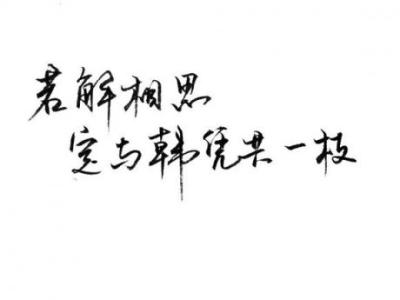 若解相思
定与韩凭共一枝